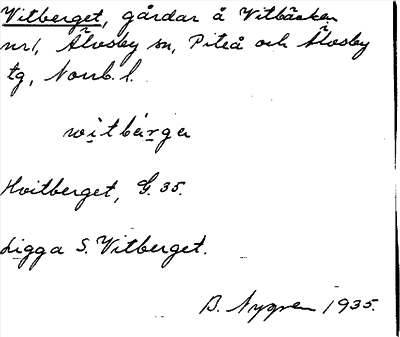 Vitberget, gårdar å Vitbäcken
nr 1, Älvsby sn, Piteå och Älvsby
tg, Norrb. l.
witbärga
Hvitberget, G. 35.
Ligga S. Vitberget.
B. Nygren 1935.